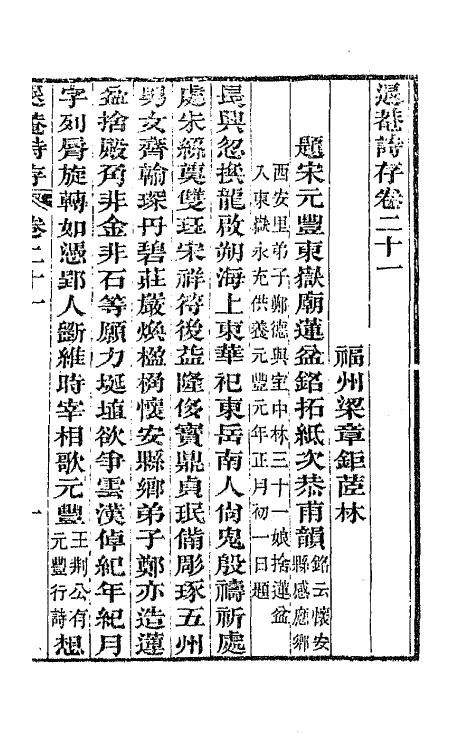 退菴詩存卷二十一
福州梁章鉅茝林
題宋元豐東嶽廟蓮盆銘拓紙次恭甫韻銘云懷安縣感應鄉
西安里弟子鄭德與室中林三十一娘捨蓮盆
入東嶽永充供養元豐元年正月初一日題
長興忽換龍啟朔海上東華祀東岳南人尙鬼殷禱祈處
處朱絲奠雙珏宋祥符後益隆侈寶鼎貞珉備彫琢五州
男女齊輸琛丹碧莊嚴煥楹桷懷安縣鄉弟子鄭亦造蓮
盆捨殿角非金非石等願力埏埴欲爭雲漢倬紀年紀月
字列厝旋轉如憑郢人斵維時宰相歌元豐王荆公有元豐行詩想
退菴詩存 卷二十一 一